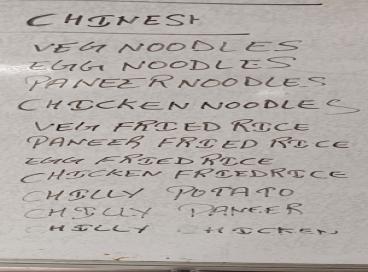 CHINESH
VEG NOODLES
EGG NOODLES
PANEER NOODLES
CHICKEN NOODLES
VEG FRIED RICE
PANEER FRIED RICE
EGG FRIED RICE
CHICKEN FRIED RICE
CHILLY POTATO
CHILLY PANEER
CHILLY CHICKEN